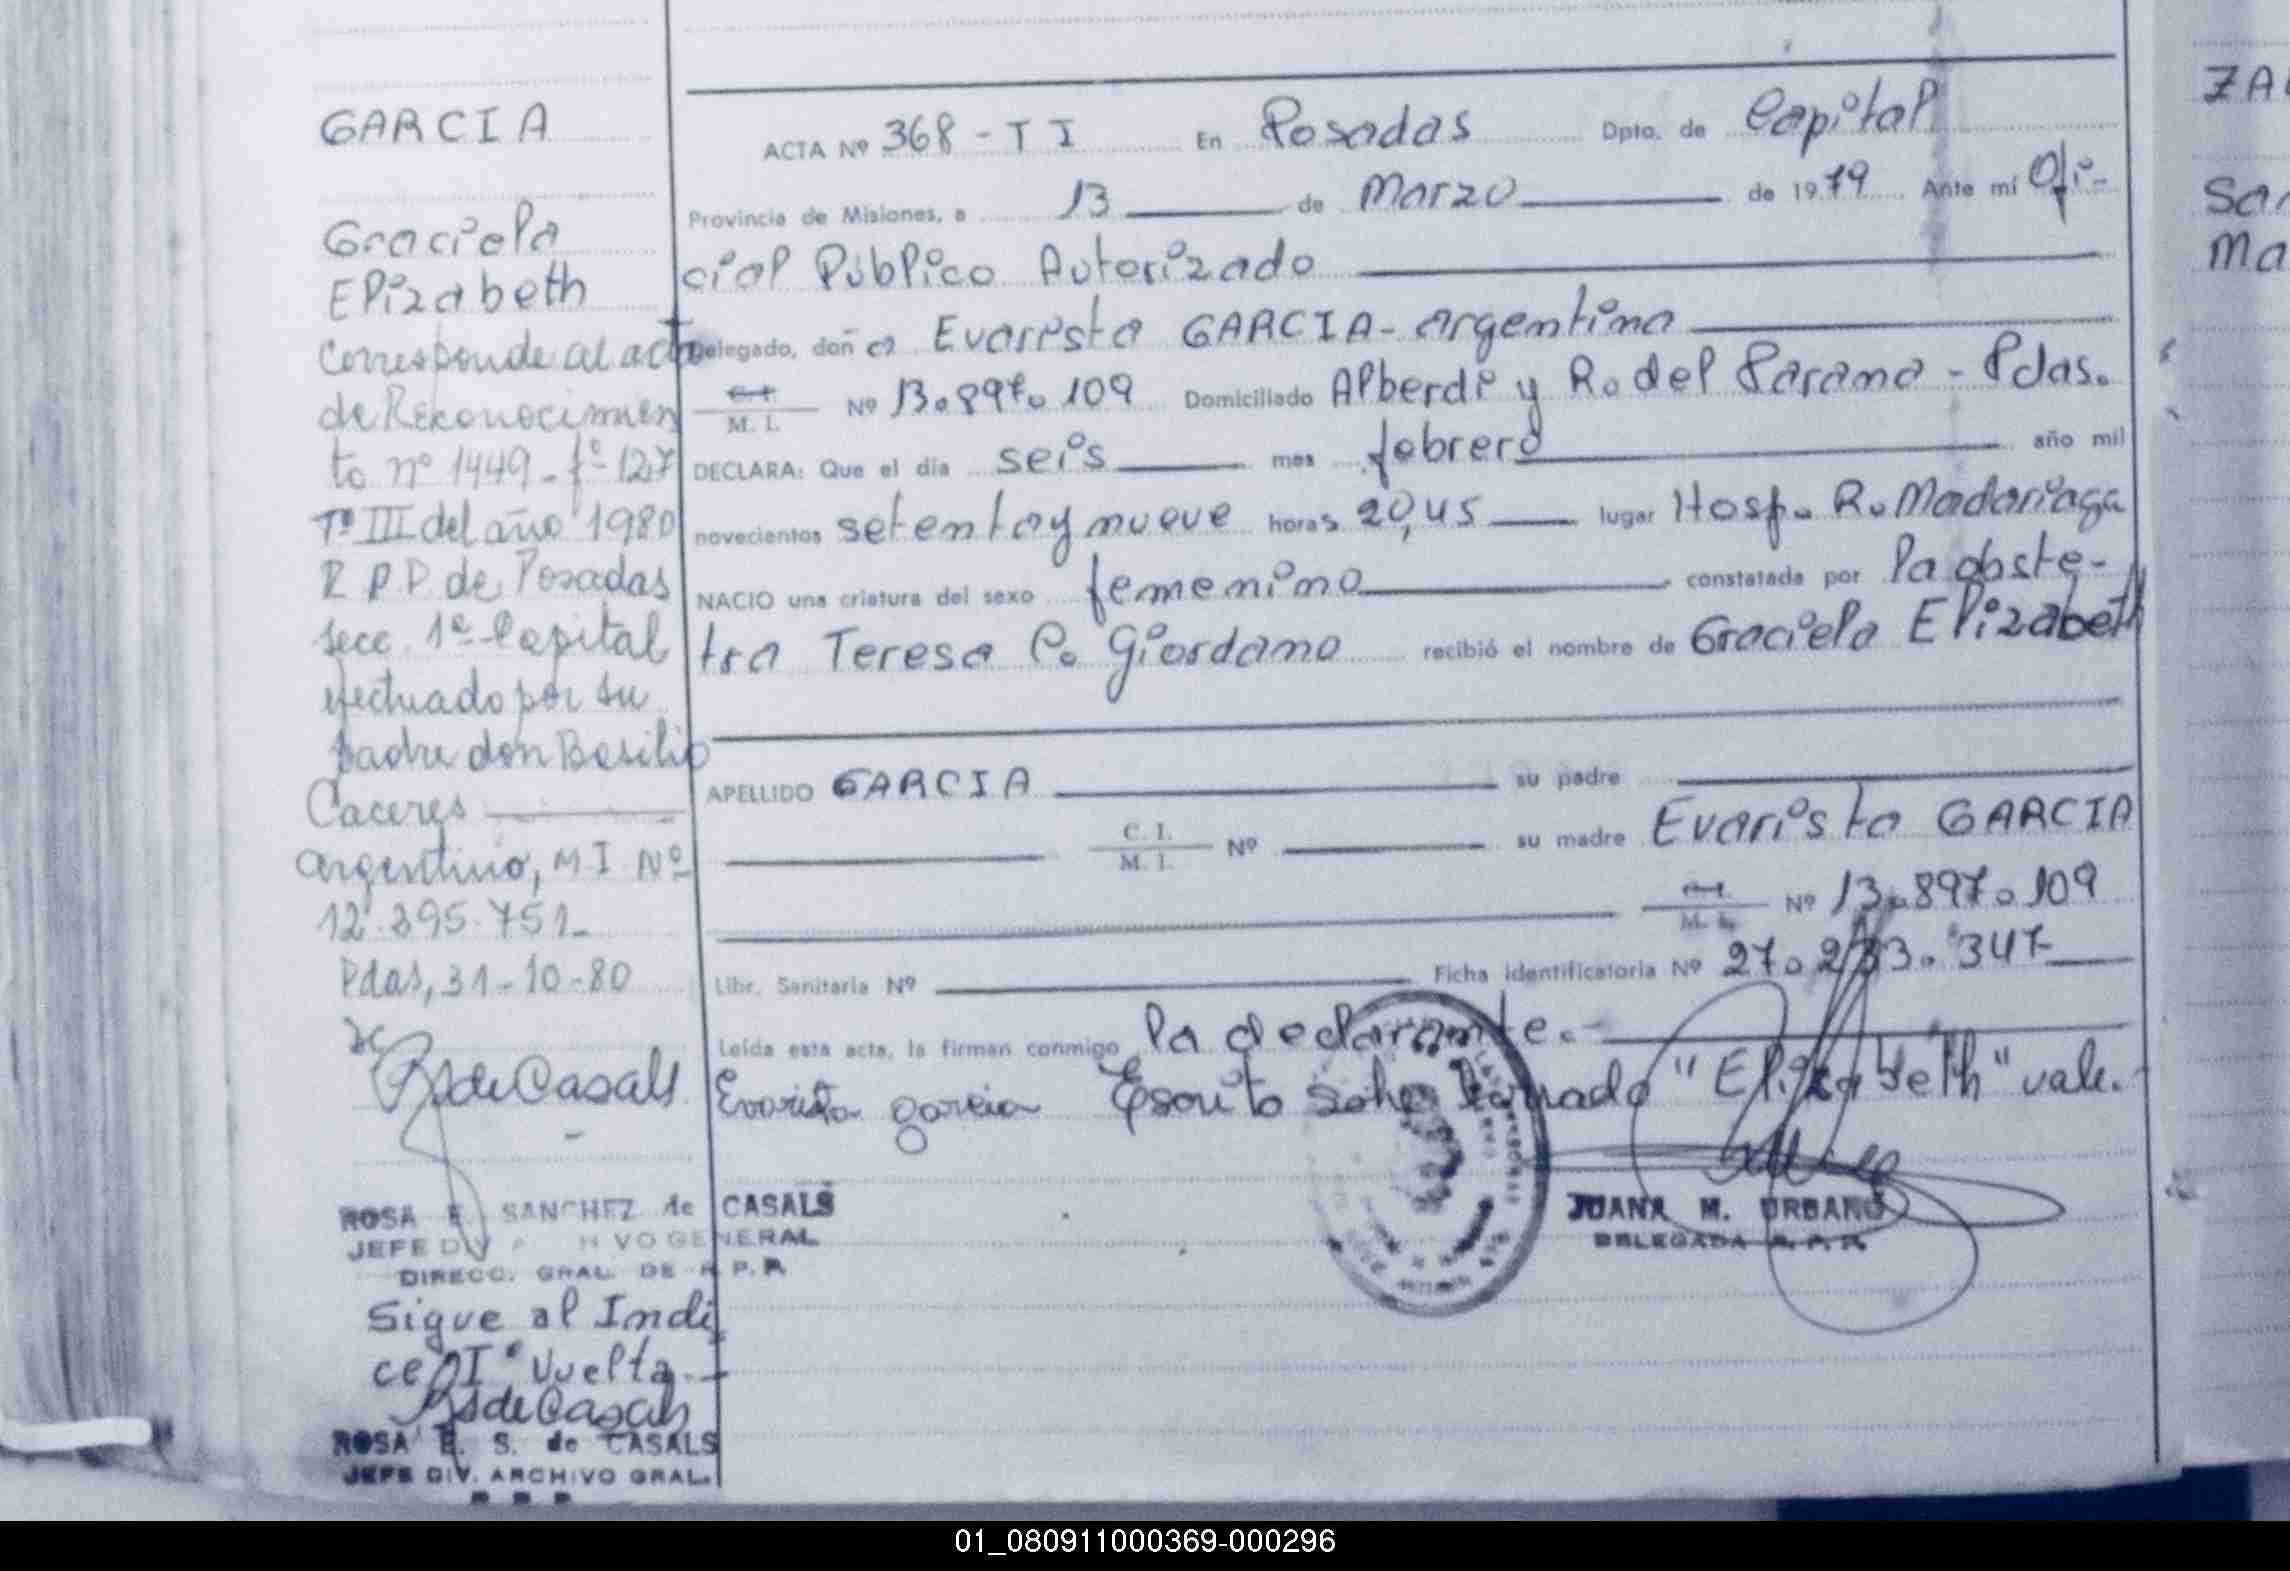 GARCIA
Graciela
Elizabeth
Corresponde al acta
de Reconocimien
to nº 1449 - fº 127
Tº III del año 1980
R P.P. de Posadas
secc. 1ª Capital
efectuado por su
padre don Basilio
Caceres
argentino, M I Nº
12.395.751-
Pdas, 31-10-80
RSdeCasals
ROSA E. SANCHEZ de CASALS
JEFE DIV. ARCHIVO GENERAL
DIRECC. GRAL. DE R.P.P.
Sigue al Indi
ce Iº Vuelta.-
RSdeCasals
ROSA E. S. de CASALS
JEFE DIV. ARCHIVO GRAL.
R. P. P.
ACTA Nº 368 - T I En Posadas Dpto. de Capital
Provincia de Misiones, a 13 de Marzo de 1979 Ante mí Ofi-
cial Público Autorizado
Delegado, doña Evarista GARCIA - argentina
C.I. M. I. Nº 13.897.109 Domiciliado Alberdi y R. del Parana - Pdas.
DECLARA: Que el día seis mes febrero año mil
novecientos setenta y nueve horas 20,45 lugar Hosp. R. Madariaga
NACIO una criatura del sexo femenino constatada por la obste-
tra Teresa C. Giordano recibió el nombre de Graciela Elizabeth
APELLIDO GARCIA su padre
C. I. M. I. Nº su madre Evarista GARCIA
C.I. M. I. Nº 13.897.109
Libr. Sanitaria Nº Ficha identificatoria Nº 27.233.347
Leída esta acta, la firman conmigo la declarante.-
Evarista garcia Escrito sobre borrado "Elizabeth" vale.-
JUANA M. URBANO
DELEGADA R. P. P.
ZA
Sa
Ma
01_080911000369-000296